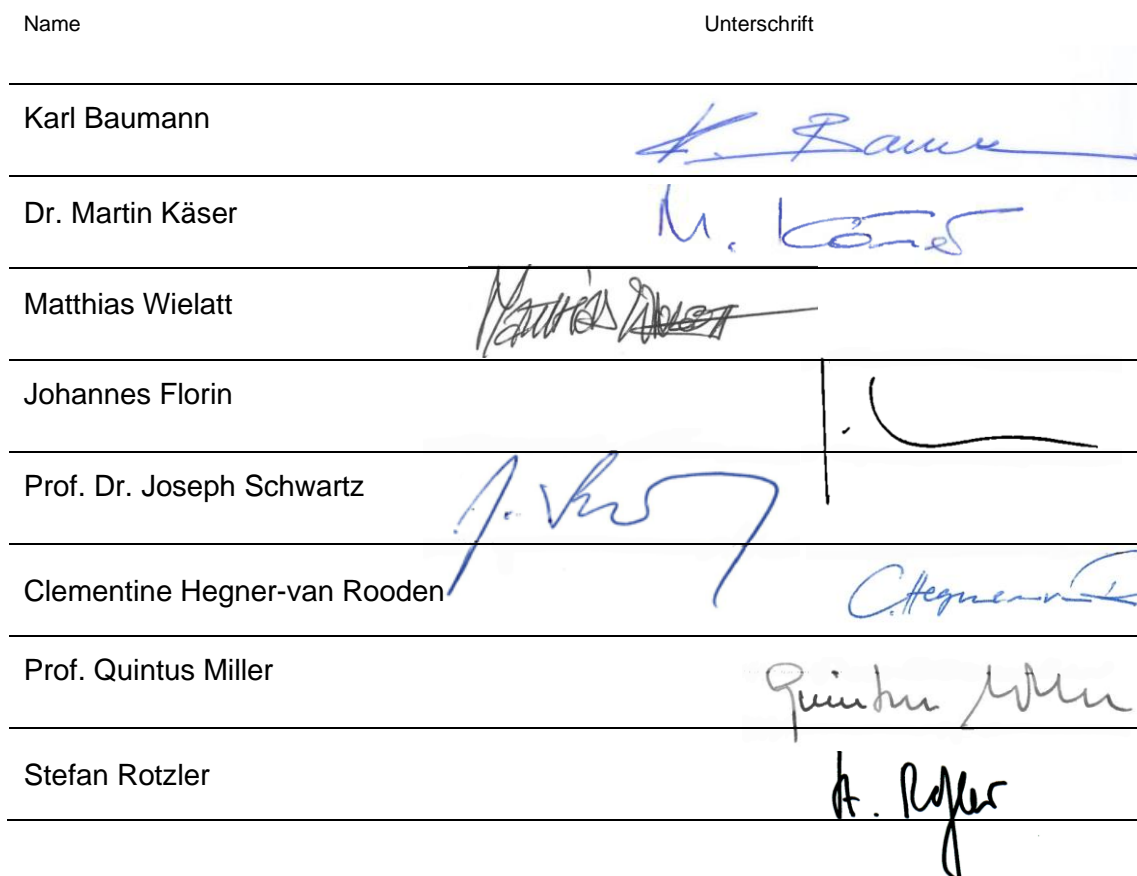 Name Unterschrift
Karl Baumann K. Baum
Dr. Martin Käser M. Käser
Matthias Wielatt Matthias Wielatt
Johannes Florin
Prof. Dr. Joseph Schwartz J.
Clementine Hegner-van Rooden C. Hegner-v. R
Prof. Quintus Miller Quintus Miller
Stefan Rotzler St. Rotzler